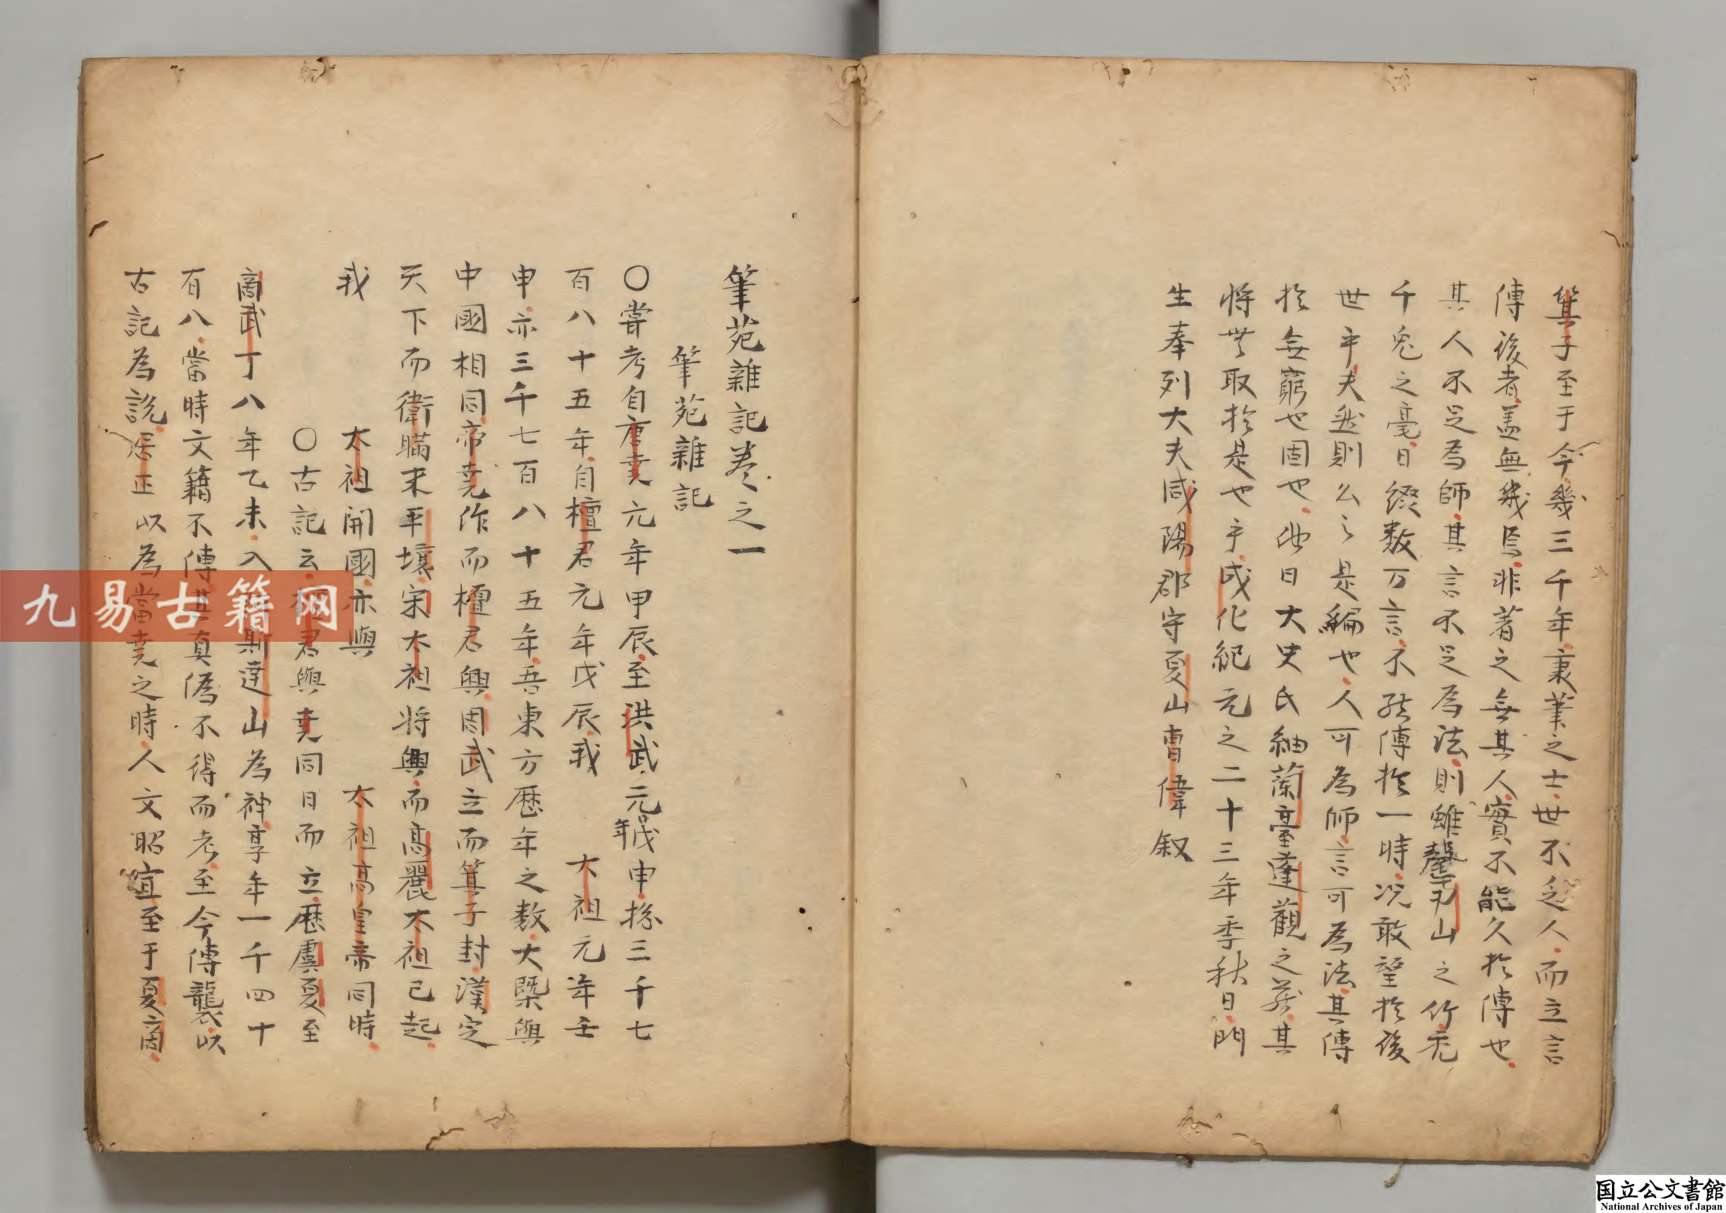 箕子至于今幾三千年秉筆之士世不乏人而立言
傳後者盖無幾焉非著之無其人實不能久於傳也
其人不足為師其言不足為法則雖罄南山之竹禿
千兎之毫日綴数万言不能傳於一時况敢望於後
世乎夫然則公之是編也人可為師言可為法其傳
於無窮也固也他日大史氏紬蘭臺蓬觀之藏其
將無取於是也乎成化紀元之二十三年季秋日門
生奉列大夫咸陽郡守夏山曺偉叙
筆苑雜記巻之一
筆苑雜記
〇嘗考自唐堯元年甲辰至洪武元年戊申摠三千七
百八十五年自檀君元年戊辰我 太祖元年壬
申亦三千七百八十五年吾東方歷年之数大槩與
中國相同帝堯作而檀君興周武立而箕子封漢定
天下而衛瞞来平壤宋太祖将興而高麗太祖已起
我 太祖開國亦與 太祖高皇帝同時
〇古記云檀君與堯同日而立歷虞夏至
商武丁八年乙未入阿斯達山為神享年一千四十
有八當時文籍不傳其真僞不得而考至今傳襲以
古記為説居正以為當堯之時人文昭宣至于夏商
九易古籍网
国立公文書館
National Archives of Japan